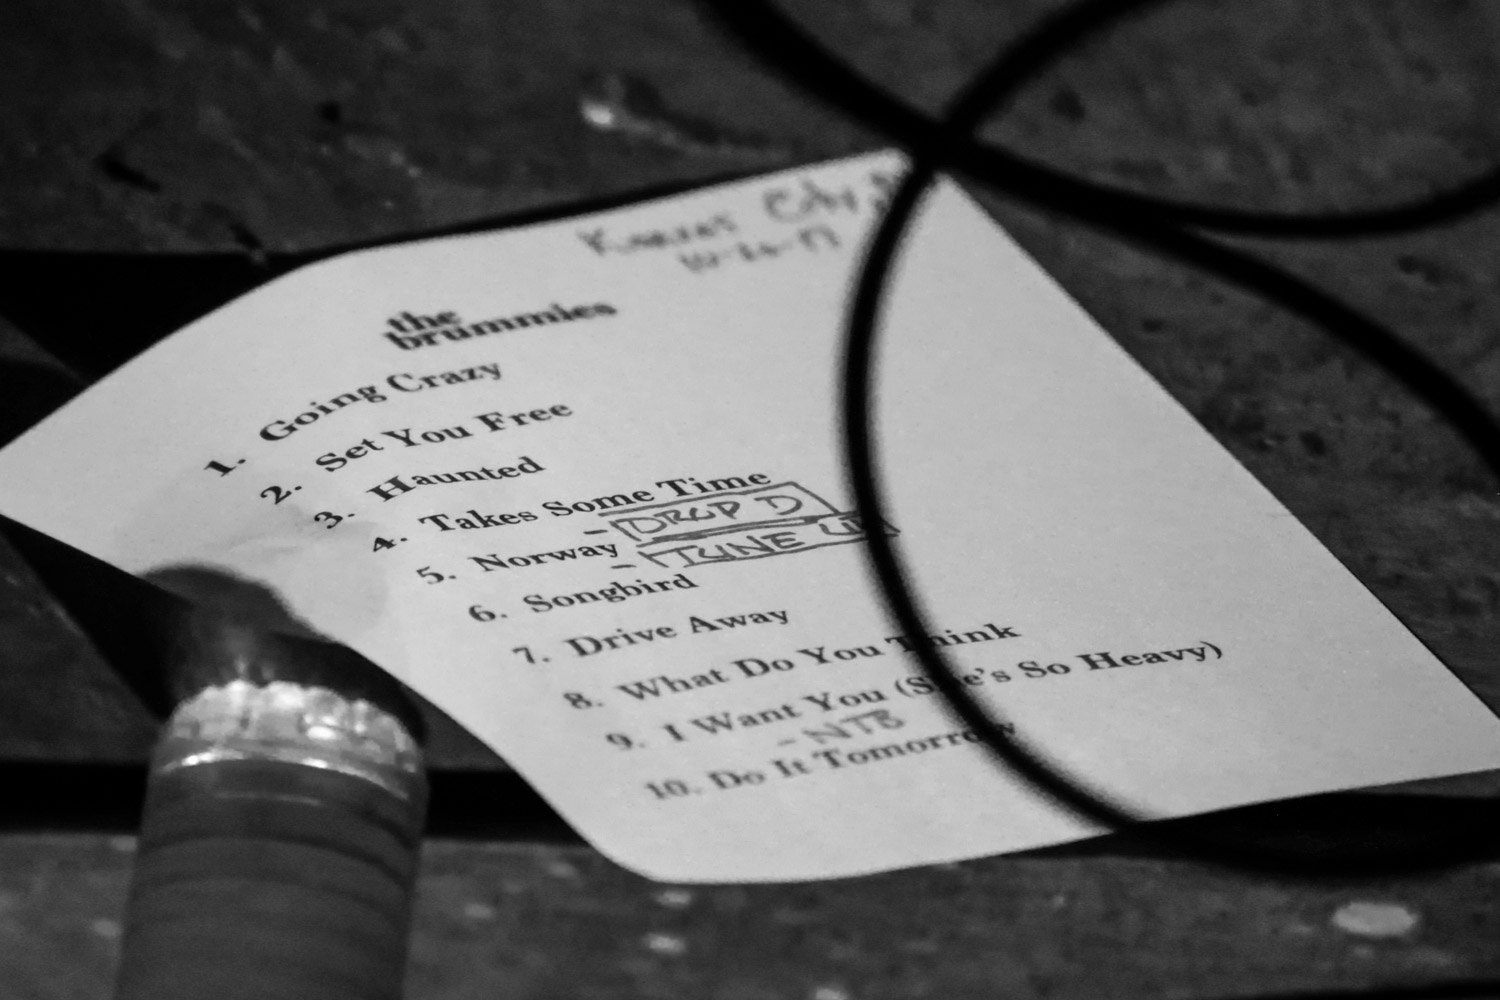 Kansas City,
the
brummies
1. Going Crazy
2. Set You Free
3. Haunted
4. Takes Some Time
- DROP D
5. Norway
- TUNE UP
6. Songbird
7. Drive Away
8. What Do You Think
9. I Want You (She's So Heavy)
- NTB
10. Do It Tomorrow